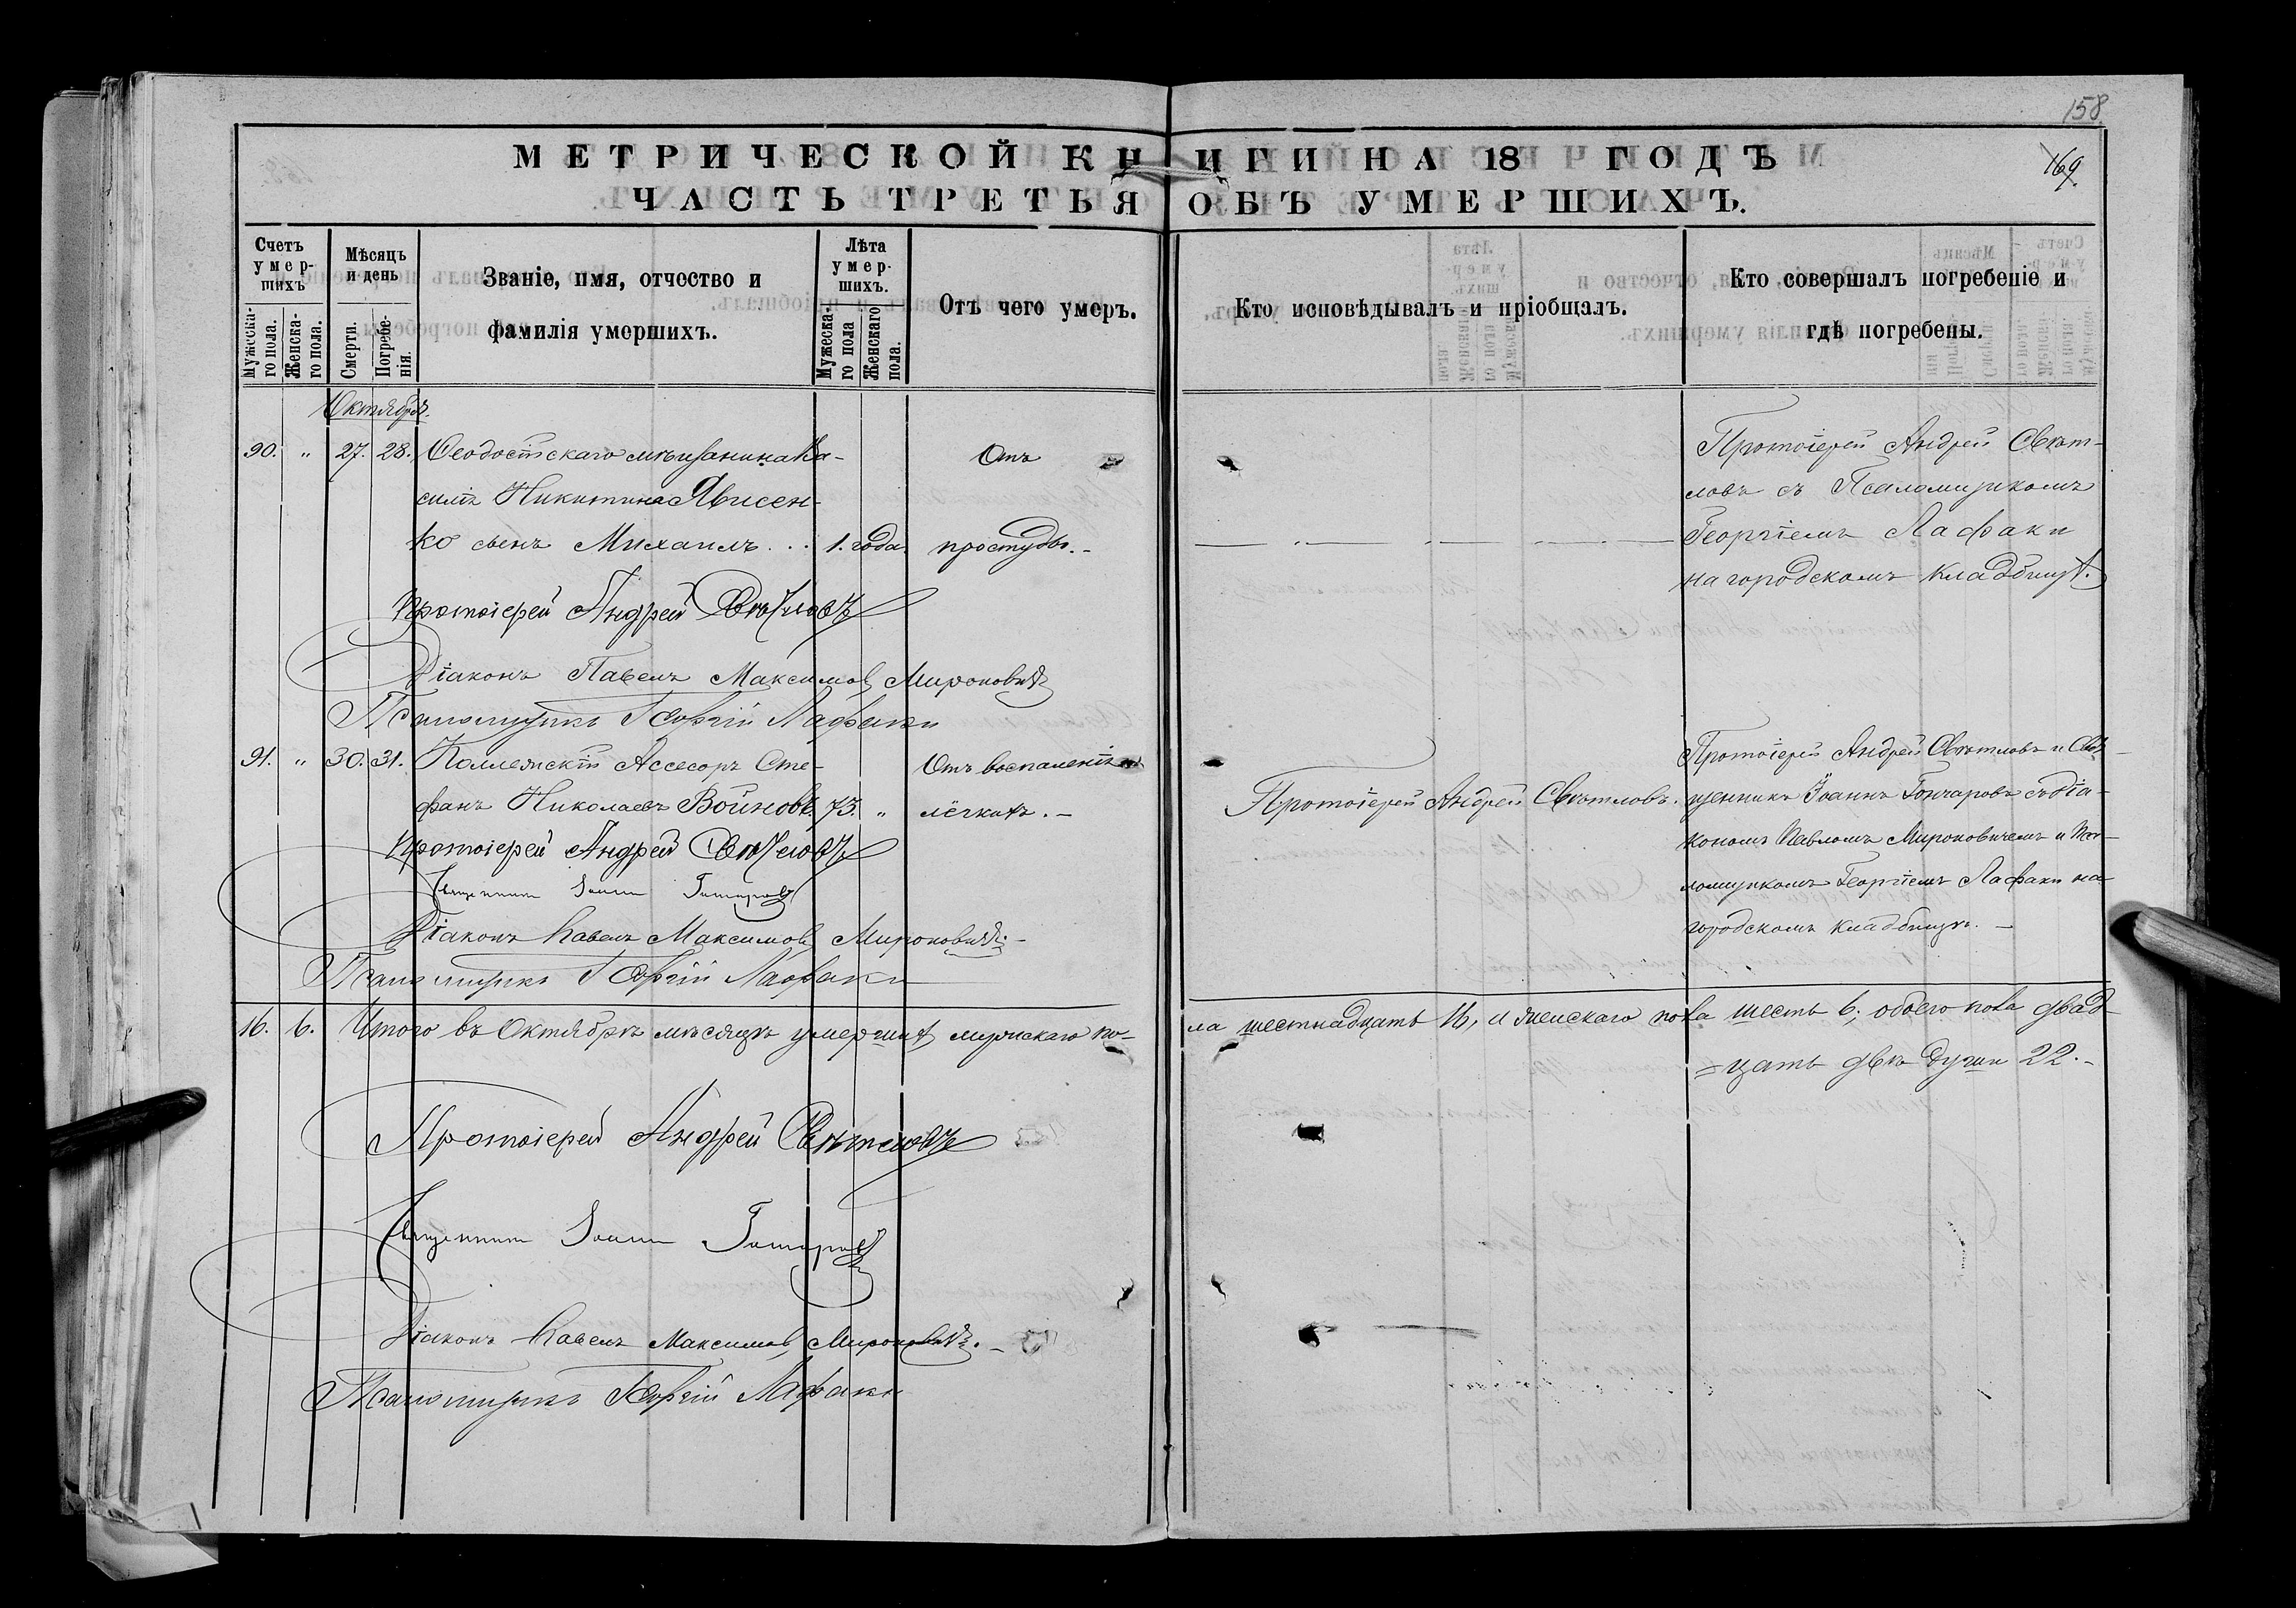 158
169
МЕТРИЧЕСКОЙ КНИГИ НА 18 ГОДЪ
ЧАСТЬ ТРЕТЬЯ ОБЪ УМЕРШИХЪ.
Счетъ умер-шихъ
Мужеска-го пола.
Женска-го пола.
Мѣсяцъ и день
Смерти.
Погребе-нія.
Званіе, имя, отчество и
фамилія умершихъ.
Лѣта умер-шихъ.
Мужеска-го пола
Женскаго пола.
Отъ чего умеръ.
Кто исповѣдывалъ и пріобщалъ.
Кто совершалъ погребеніе и
гдѣ погребены.
Октября.
90. " 27. 28. Ѳеодосійскаго мѣщанина Ва-
силія Никитина Явисен-
ко сынъ Михаилъ... 1. года.
Отъ
простуды.-
Протоіерей Андрей Свѣт-
ловъ съ Псаломщикомъ
Георгіемъ Лафаки
на городскомъ кладбищѣ.
Протоіерей Андрей Свѣтловъ
Діаконъ Павелъ Максимовъ Мироновичъ
Псаломщикъ Георгій Лафаки
91. " 30. 31. Коллежскій Ассесоръ Сте-
фанъ Николаевъ Войновъ. 73. "
Отъ воспаленія
лёгкихъ.-
Протоіерей Андрей Свѣтловъ.
Протоіерей Андрей Свѣтловъ и Свя-
щенникъ Іоаннъ Гончаровъ съ діа-
кономъ Павломъ Мироновичемъ и Пса-
ломщикомъ Георгіемъ Лафаки на
городскомъ кладбищѣ.-
Протоіерей Андрей Свѣтловъ
Священникъ Іоаннъ Гончаровъ
Діаконъ Павелъ Максимовъ Мироновичъ.-
Псаломщикъ Георгій Лафаки
16. 6. Итого въ Октябрѣ мѣсяцѣ умершихъ мужскаго по-
ла шестнадцать 16, и женскаго пола шесть 6; обоего пола двад-
=цать двѣ души 22.-
Протоіерей Андрей Свѣтловъ
Священникъ Іоаннъ Гончаровъ
Діаконъ Павелъ Максимовъ Мироновичъ.-
Псаломщикъ Георгій Лафаки